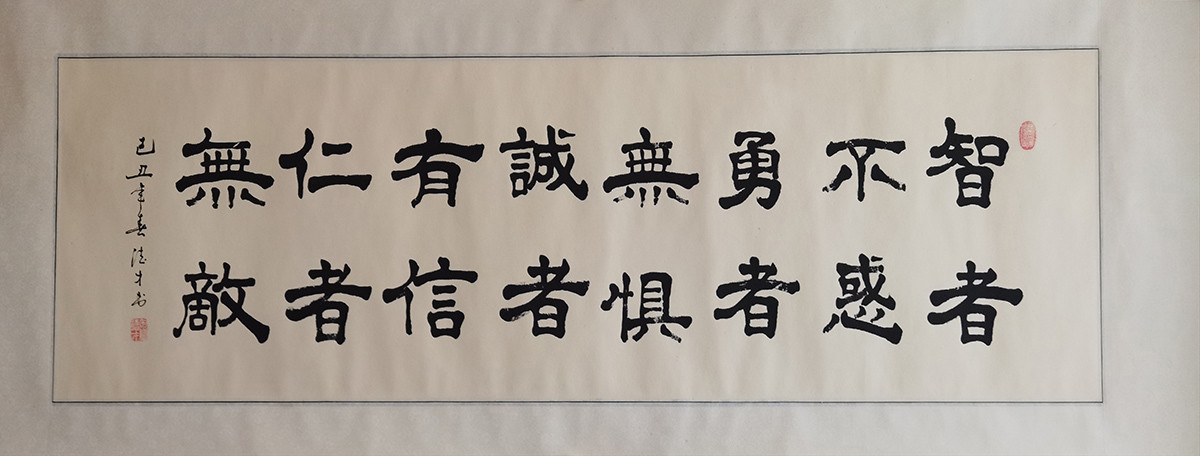 智者
不惑
勇者
無惧
誠者
有信
仁者
無敵
己丑年春德才书